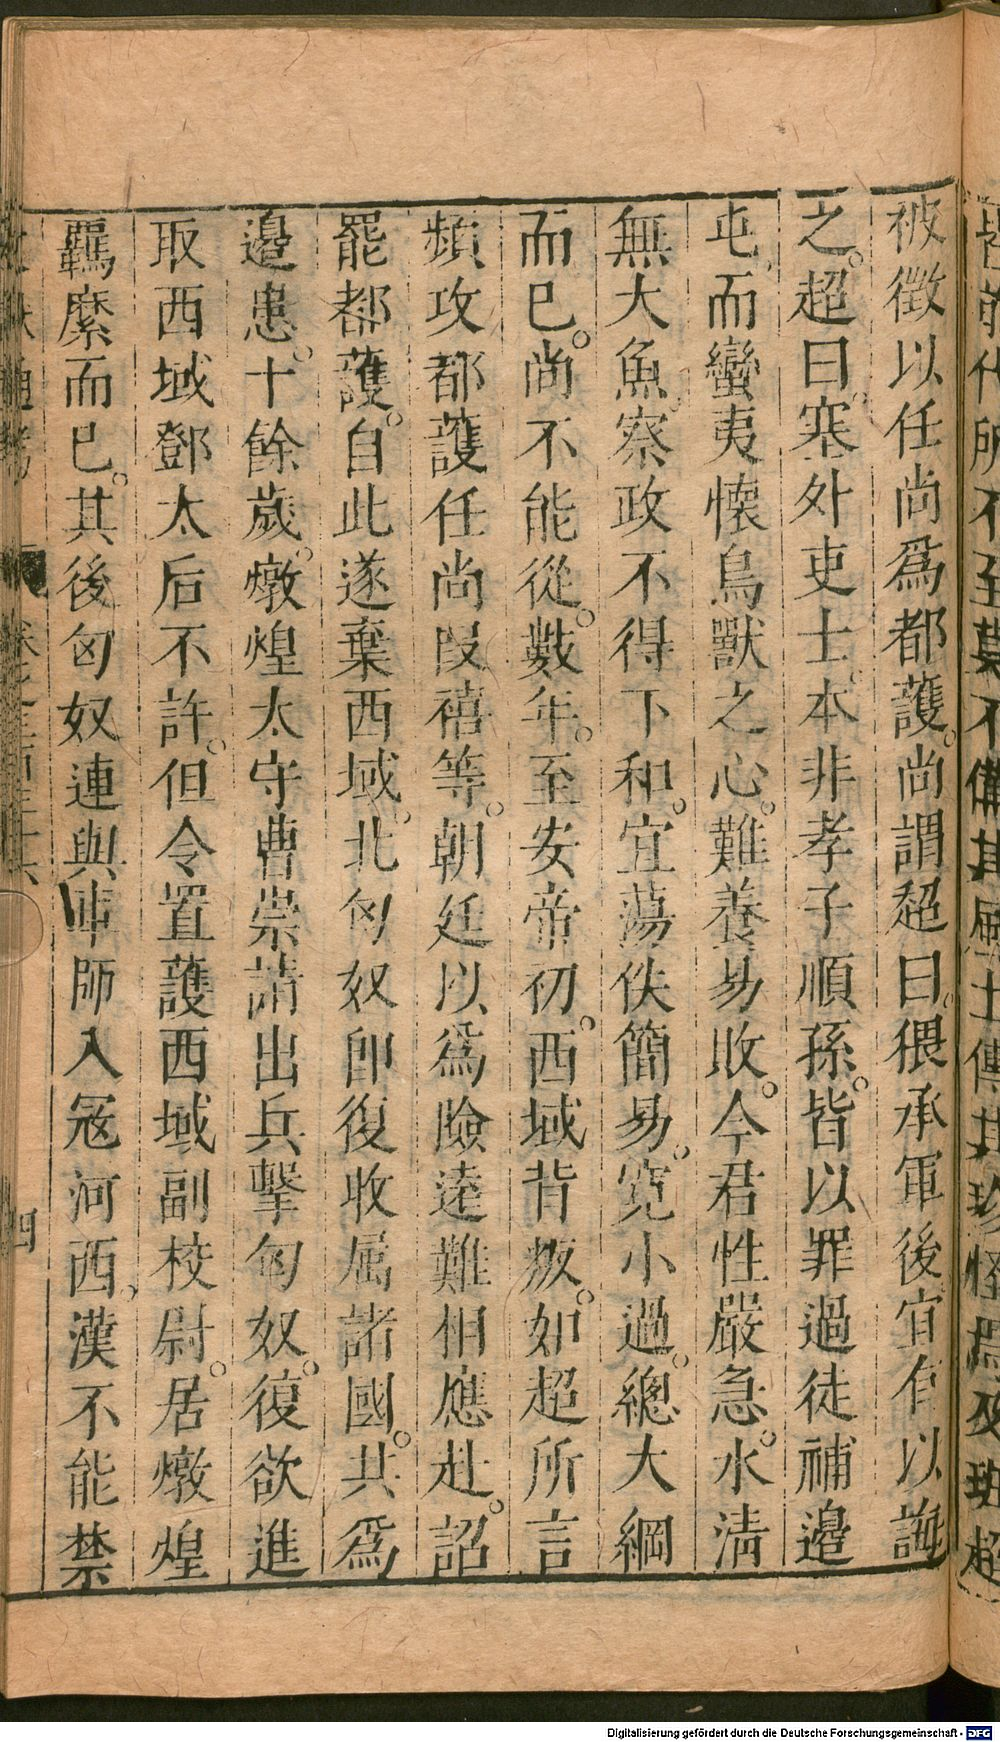 皆前代所不至莫不備其風土傳其珍怪焉及班超
被徵以任尚爲都護。尚謂超曰。猥承軍後宜有以誨
之。超曰。塞外吏士。本非孝子順孫。皆以罪過徒補邊
屯而蠻夷懷鳥獸之心。難養易敗。今君性嚴急。水清
無大魚。察政不得下和。宜蕩佚簡易。寬小過。總大綱
而已。尚不能從。數年。至安帝初。西域背叛。如超所言
頻攻都護任尚段禧等。朝廷以爲險遠難相應赴。詔
罷都護。自此遂棄西域。北匈奴即復收属諸國。共爲
邊患。十餘歲。燉煌太守曹崇請出兵擊匈奴。復欲進
取西域鄧太后不許。但令置護西域副校尉。居燉煌
羈縻而已。其後匈奴連與車師入寇河西。漢不能禁
文獻通考 卷之三百三十六 四
Digitalisierung gefördert durch die Deutsche Forschungsgemeinschaft - DFG